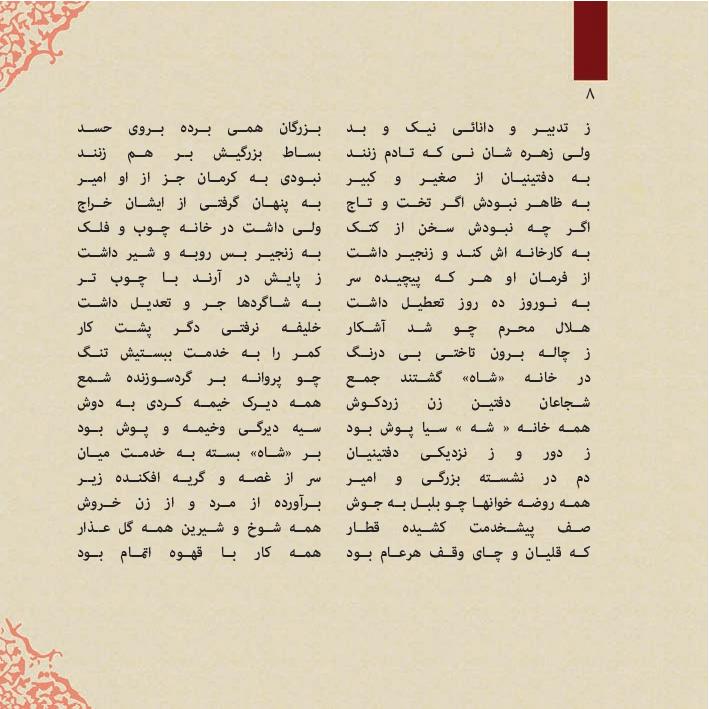 ۸
ز تدبیر و دانائی نیک و بد بزرگان همی برده بروی حسد
ولی زهره شان نی که تادم زنند بساط بزرگیش بر هم زنند
به دفتینیان از صغیر و کبیر نبودی به کرمان جز از او امیر
به ظاهر نبودش اگر تخت و تاج به پنهان گرفتی از ایشان خراج
اگر چه نبودش سخن از کتک ولی داشت در خانه چوب و فلک
به کارخانه اش کند و زنجیر داشت به زنجیر بس روبه و شیر داشت
از فرمان او هر که پیچیده سر ز پایش در آرند با چوب تر
به نوروز ده روز تعطیل داشت به شاگردها جر و تعدیل داشت
هلال محرم چو شد آشکار خلیفه نرفتی دگر پشت کار
ز چاله برون تاختی بی درنگ کمر را به خدمت ببستیش تنگ
در خانه «شاه» گشتند جمع چو پروانه بر گردسوزنده شمع
شجاعان دفتین زن زردکوش همه دیرک خیمه کردی به دوش
همه خانه « شه » سیا پوش بود سیه دیرگی وخیمه و پوش بود
ز دور و ز نزدیکی دفتینیان بر «شاه» بسته به خدمت میان
دم در نشسته بزرگی و امیر سر از غصه و گریه افکنده زیر
همه روضه خوانها چو بلبل به جوش برآورده از مرد و از زن خروش
صف پیشخدمت کشیده قطار همه شوخ و شیرین همه گل عذار
که قلیان و چای وقف هرعام بود همه کار با قهوه اتمام بود